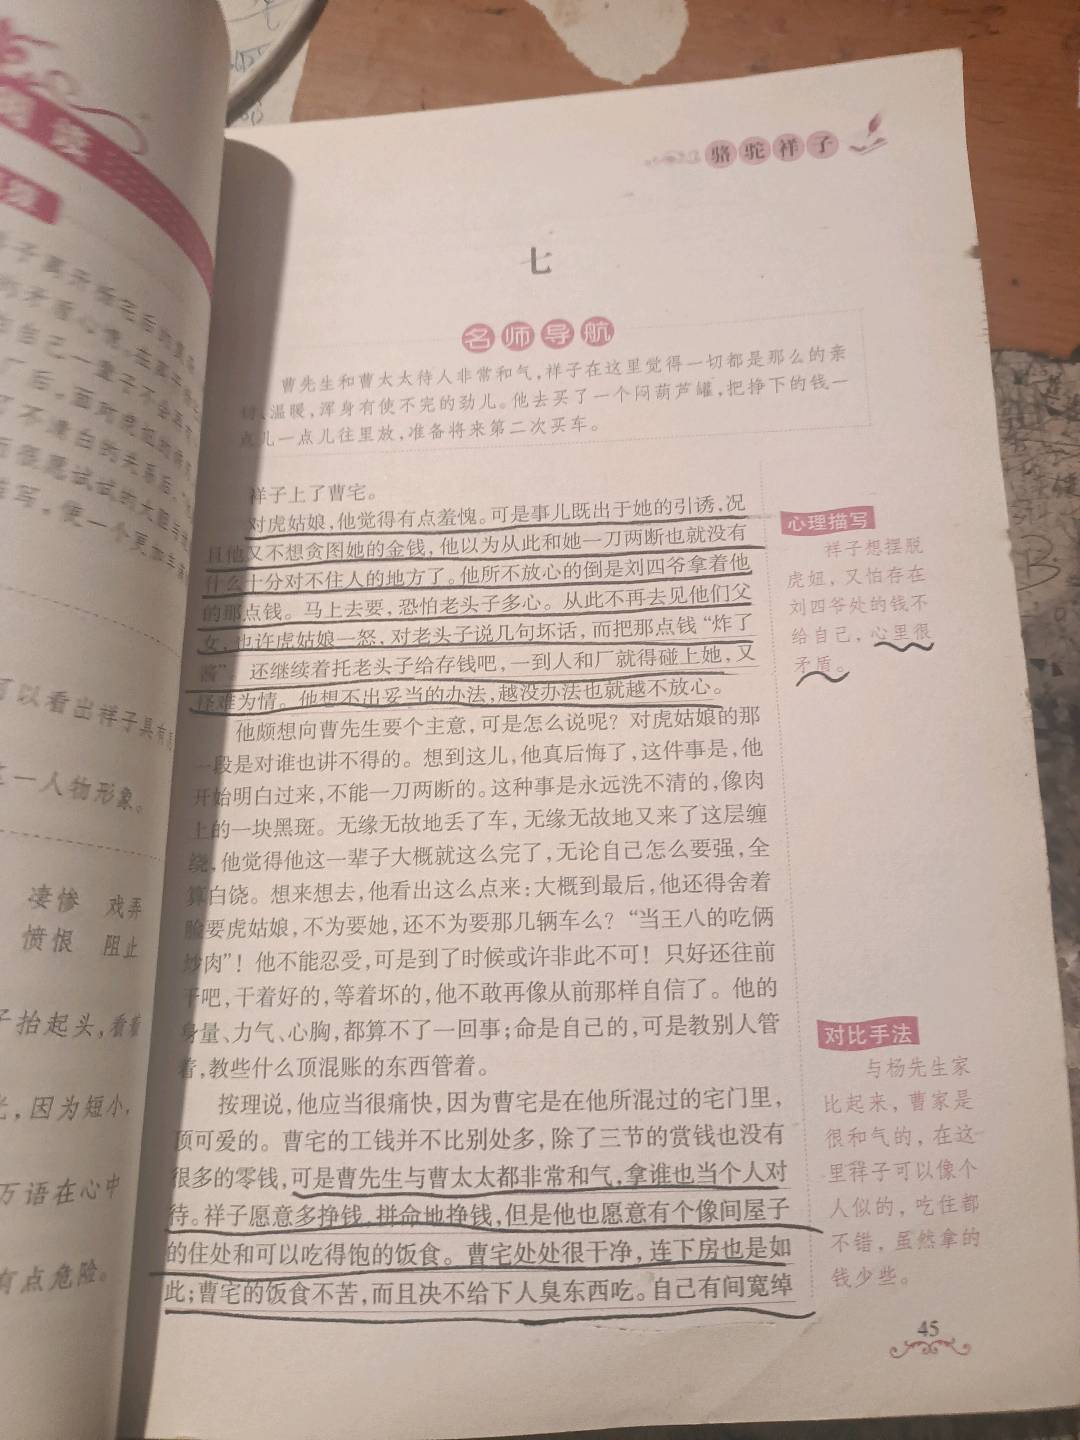 骆驼祥子
七
名师导航
曹先生和曹太太待人非常和气,祥子在这里觉得一切都是那么的亲
切、温暖,浑身有使不完的劲儿。他去买了一个闷葫芦罐,把挣下的钱一
点儿一点儿往里放,准备将来第二次买车。
祥子上了曹宅。
对虎姑娘,他觉得有点羞愧。可是事儿既出于她的引诱,况
且他又不想贪图她的金钱,他以为从此和她一刀两断也就没有
什么十分对不住人的地方了。他所不放心的倒是刘四爷拿着他
的那点钱。马上去要,恐怕老头子多心。从此不再去见他们父
女,也许虎姑娘一怒,对老头子说几句坏话,而把那点钱“炸了
酱”。还继续着托老头子给存钱吧,一到人和厂就得碰上她,又
怪难为情。他想不出妥当的办法,越没办法也就越不放心。
他颇想向曹先生要个主意,可是怎么说呢?对虎姑娘的那
一段是对谁也讲不得的。想到这儿,他真后悔了,这件事是,他
开始明白过来,不能一刀两断的。这种事是永远洗不清的,像肉
上的一块黑斑。无缘无故地丢了车,无缘无故地又来了这层缠
绕,他觉得他这一辈子大概就这么完了,无论自己怎么要强,全
算白饶。想来想去,他看出这么点来:大概到最后,他还得舍着
脸要虎姑娘,不为要她,还不为要那几辆车么?“当王八的吃俩
炒肉”!他不能忍受,可是到了时候或许非此不可!只好还往前
干吧,干着好的,等着坏的,他不敢再像从前那样自信了。他的
身量、力气、心胸,都算不了一回事;命是自己的,可是教别人管
着,教些什么顶混账的东西管着。
按理说,他应当很痛快,因为曹宅是在他所混过的宅门里,
顶可爱的。曹宅的工钱并不比别处多,除了三节的赏钱也没有
很多的零钱,可是曹先生与曹太太都非常和气,拿谁也当个人对
待。祥子愿意多挣钱,拼命地挣钱,但是他也愿意有个像间屋子
的住处和可以吃得饱的饭食。曹宅处处很干净,连下房也是如
此;曹宅的饭食不苦,而且决不给下人臭东西吃。自己有间宽绰
心理描写
祥子想摆脱
虎妞,又怕存在
刘四爷处的钱不
给自己,心里很
矛盾。
对比手法
与杨先生家
比起来,曹家是
很和气的,在这
里祥子可以像个
人似的,吃住都
不错,虽然拿的
钱少些。
45
可以看出祥子具有
一人物形象。
凄惨 戏弄
愤恨 阻止
子抬起头,看着
光,因为短小,
万语在心中
有点危险。